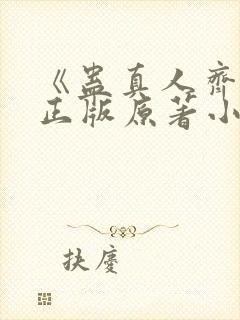 《蛊真人齐
正版原著小
扶廑